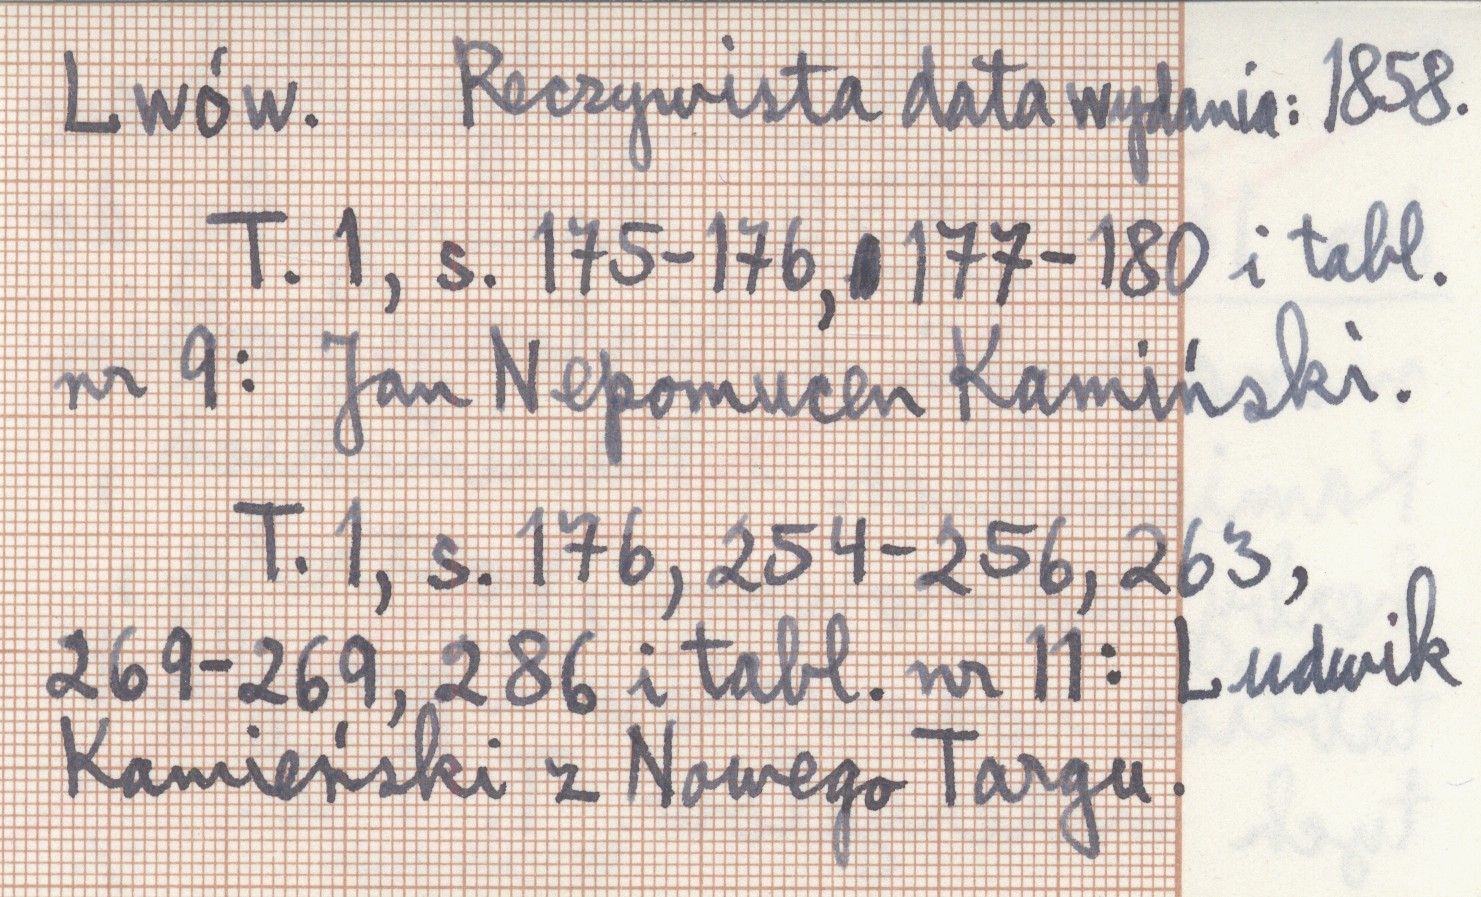 Lwów. Reczywista data wydania: 1858.
T. 1, s. 175-176, 177-180 i tabl.
nr 9: Jan Nepomucen Kamiński.
T. 1, s. 176, 254-256, 263,
269-269, 286 i tabl. nr 11: Ludwik
Kamieński z Nowego Targu.